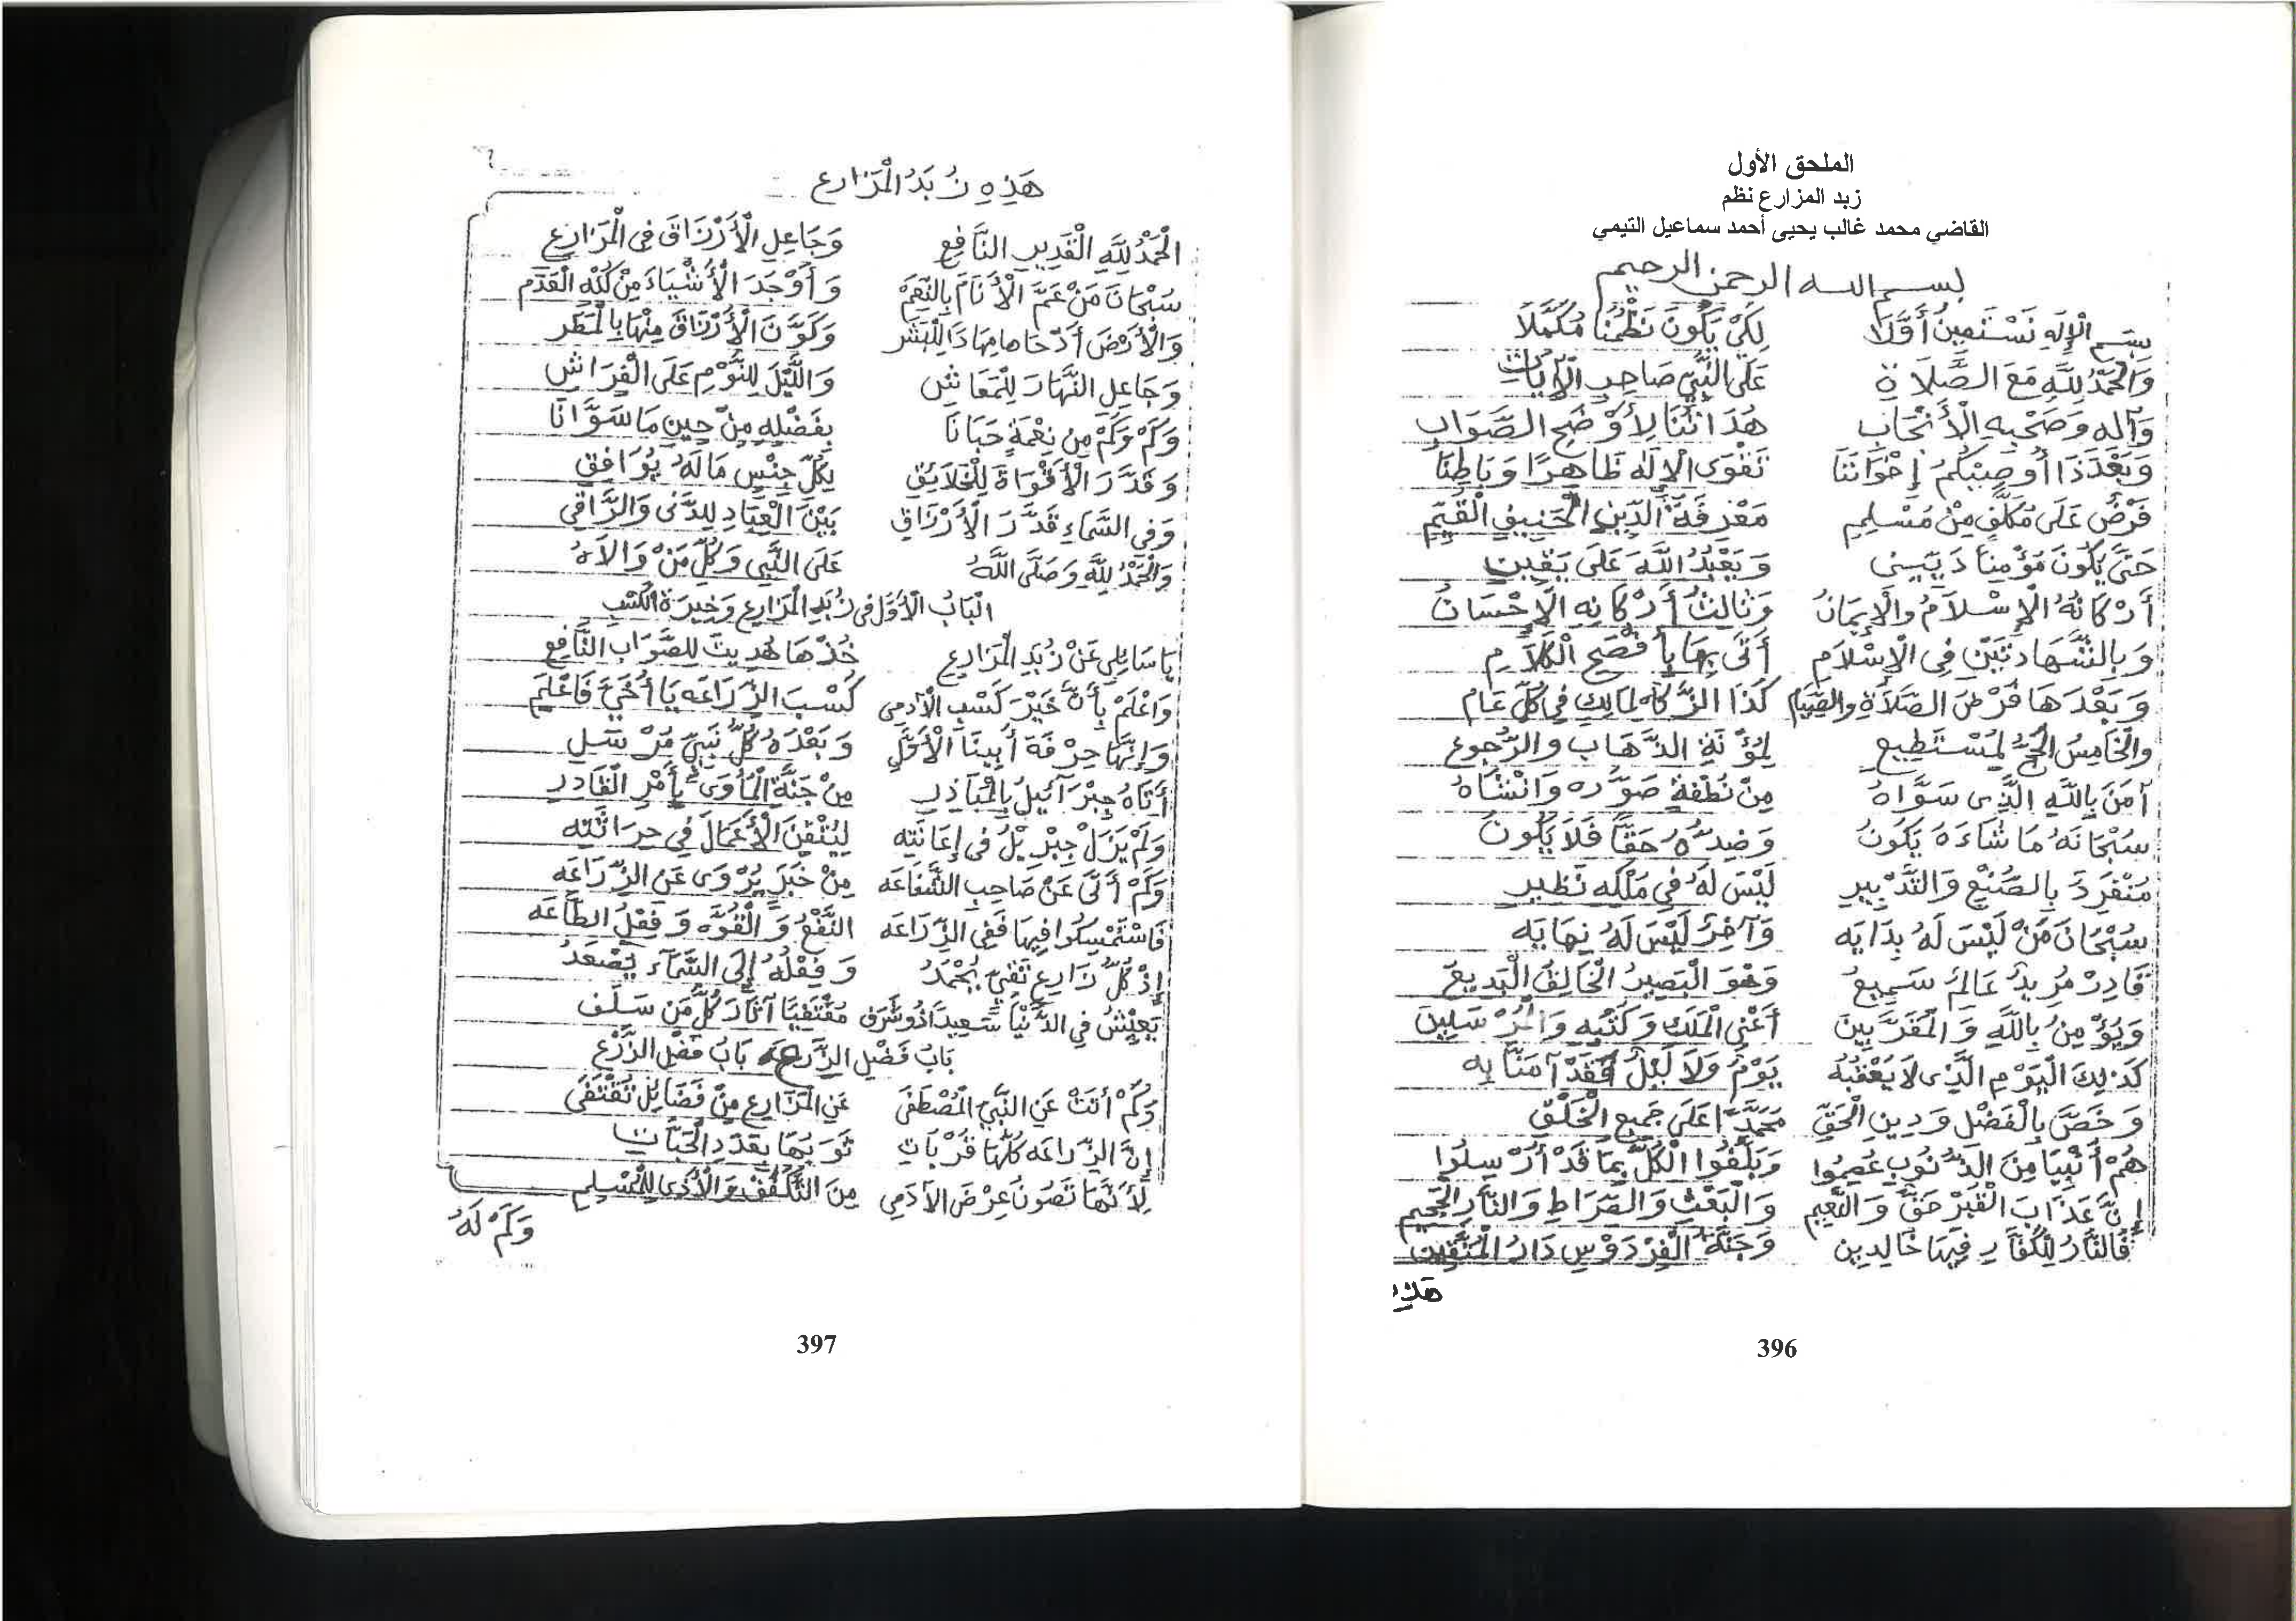 الملحق الأول
زبد المزارع نظم
القاضي محمد غالب يحيى أحمد سماعيل التيمي
بسم الله الرحمن الرحيم
بِسْمِ الْإِلَهِ نَسْتَعِينُ أَوَّلَا لِكَيْ يَكُونَ نَظْمُنَا مُكَمَّلَا
وَالْحَمْدُ لِلَّهِ مَعَ الصَّلَاةِ عَلَى النَّبِيِّ صَاحِبِ الْآيَاتِ
وَآلِهِ وَصَحْبِهِ الْأَنْجَابِ هُدَاتُنَا لِأَوْضَحِ الصَّوَابِ
وَبَعْدَ ذَا أُوصِيكُمُ إِخْوَانَنَا تَقْوَى الْإِلَهِ ظَاهِرًا وَبَاطِنَا
فَرْضٌ عَلَى مُكَلَّفٍ مِنْ مُسْلِمِ مَعْرِفَةُ الدِّينِ الْحَنِيفِ الْقَيِّمِ
حَتَّى يَكُونَ مُؤْمِنًا دَيِّيِنى وَيَعْبُدُ اللَّهَ عَلَى يَقِينِ
أَرْكَانُهُ الْإِسْلَامُ وَالْإِيمَانُ وَثَالِثُ أَرْكَانِهِ الْإِحْسَانُ
وَبِالشَّهَادَتَيْنِ فِي الْإِسْلَامِ أَتَى بِهَا بِأَفْصَحِ الْكَلَامِ
وَبَعْدَهَا فَرْضُ الصَّلَاةِ وَالصِّيَامِ كَذَا الزَّكَاةُ لِمَالِكٍ فِي كُلِّ عَامِ
وَالْخَامِسُ الْحَجُّ لِمُسْتَطِيعِ لِمُؤْنَةِ الذَّهَابِ وَالرُّجُوعِ
آمَنَ بِاللَّهِ الَّذِى سَوَّاهُ مِنْ نُطْفَةٍ صَوَّرَهُ وَانْشَاهُ
سُبْحَانَهُ مَا شَاءَهُ يَكُونُ وَضِدُّهُ حَقًّا فَلَا يَكُونُ
مُنْفَرِدَ بِالصُّنْعِ وَالتَّدْبِيرِ لَيْسَ لَهُ فِي مُلْكِهِ نَظِيرِ
سُبْحَانَ مَنْ لَيْسَ لَهُ بِدَايَه وَآخِرٌ لَيْسَ لَهُ نِهَايَه
قَادِرْ مُرِيدٌ عَالِمٌ سَمِيعٌ وَهْوَ الْبَصِيرُ الْخَالِقُ الْبَدِيعُ
وَيُؤْمِنُ بِاللَّهِ وَالْمُقَرَّبِينَ أَعْنِي الْمَلَكِ وَكُتْبِهِ وَالْمُرْسَلِينَ
كَذَلِكَ الْيَوْمِ الَّذِى لَا يَعْقُبُهُ يَوْمٌ وَلَا لَيْلٌ فَقَدْ آمَنَّا بِهِ
وَخَصَّ بِالْفَضْلِ وَدِينِ الْحَقِّ مُحَمَّدًا عَلَى جَمِيعِ الْخَلْقِ
هُمْ أَنْبِيَا مِنَ الذُّنُوبِ عُصِمُوا وَبَلَّغُوا الْكُلَّ بِمَا قَدْ أُرْسِلُوا
إِنَّ عَذَابَ الْقَبْرِ حَقٌّ وَالنَّعِيمِ وَالْبَعْثِ وَالصِّرَاطِ وَالنَّارِ الْجَحِيمِ
فَالنَّارُ لِلْكُفَّارِ فِيهَا خَالِدِينَ وَجَنَّةُ الْفِرْدَوْسِ دَارُ الْمُتَّقِينَ
هَذِهِ
396
هَذِهِ زُبَدُ الْمَزَارِع
الْحَمْدُ لِلَّهِ الْقَدِيرِ النَّافِعِ وَجَاعِلِ الْأَرْزَاقَ فِى الْمَزَارِعِ
سُبْحَانَ مَنْ عَمَّ الْأَنَامَ بِالنِّعَمْ وَأَوْجَدَ الْأَشْيَاءَ مِنْ كُنْهِ الْعَدَمْ
وَالْأَرْضَ أَدْحَاهَا مِهَادًا لِلْبَشَر وَكَوَّنَ الْأَرْزَاقَ مِنْهَا بِالْمَطَر
وَجَاعِلِ النَّهَارَ لِلْمَعَاشِ وَاللَّيْلَ لِلنَّوْمِ عَلَى الْفِرَاشِ
وَكَمْ وَكَمْ مِنْ نِعْمَةٍ حَبَانَا بِفَضْلِهِ مِنْ حِينِ مَا سَوَّانَا
وَقَدَّرَ الْأَقْوَاةَ لِلْخَلَايُقِ لِكُلِّ جِنْسٍ مَا لَهُ يُوَافِقِ
وَفِي السَّمَاءِ قَدَّرَ الْأَرْزَاقِ بَيْنَ الْعِبَادِ لِلدَّنَى وَالرَّاقِي
وَالْحَمْدُ لِلَّهِ وَصَلَّى اللَّهُ عَلَى النَّبِي وَكُلِّ مَنْ وَالَاهُ
الْبَابُ الْأَوَّلُ فِى زُبَدِ الْمَزَارِعِ وَخِيرَةِ الْكَسْبِ
يَا سَايِلِي عَنْ زُبَدِ الْمَزَارِعِ خُذْهَا هُدِيتَ لِلصَّوَابِ النَّافِعِ
وَاعْلَمْ بِأَنَّ خَيْرَ كَسْبِ الْآدَمِى كَسْبَ الزِّرَاعَه يَا أُخَيَّ فَاعْلَمِ
وَإِنَّهَا حِرْفَةَ أَبِينَا الْأَوَّلِ وَبَعْدَهُ كُلُّ نَبِيٍّ مُرْسَلِ
أَتَاهُ جِبْرَآئِيلُ بِالْمَبَاذِرِ مِنْ جَنَّةِ الْمَأْوَى بِأَمْرِ الْقَادِرِ
وَلَمْ يَزَلْ جِبْرِيلُ فِى إِعَانَتِه لِيُتْقِنَ الْأَعْمَالَ فِي حِرَاثَتِه
وَكَمْ أَتَى عَنْ صَاحِبِ الشَّفَاعَه مِنْ خَبَرٍ يُرْوَى عَنِ الزِّرَاعَه
فَاسْتَمْسِكُوا فِيهَا فَفِى الزِّرَاعَه النَّفْعُ وَالْقُوَّه وَفِعْلُ الطَّاعَه
إِذْ كُلُّ زَارِعٍ تَقِيٍّ يُحْمَدُ وَفِعْلُهُ إِلَى السَّمَآءِ يَصْعَدُ
يَعِيْشُ فِي الدُّنْيَا سَعِيدًا ذُو شَرَف مُقْتَفِيًا آثَارَ كُلِّ مَنْ سَلَف
بَابُ فَضْلِ الزِّرَاعَه بَابُ فَضْلِ الزَّرْعِ
وَكَمْ أَتَتْ عَنِ النَّبِيِّ الْمُصْطَفَى عَنِ الْمَزَارِعِ مِنْ فَضَائِلْ تُقْتَفَى
إِنَّ الزِّرَاعَه كُلُّهَا قُرْبَاتِ ثَوَابُهَا بِعَدَدِ الْحَبَّاتِ
لِأَنَّهَا تَصُونُ عِرْضَ الْآدَمِي مِنَ التَّكَفُّفِ وَالْأَذَى لِلْمُسْلِمِ
وَكَمْ لَهُ
397